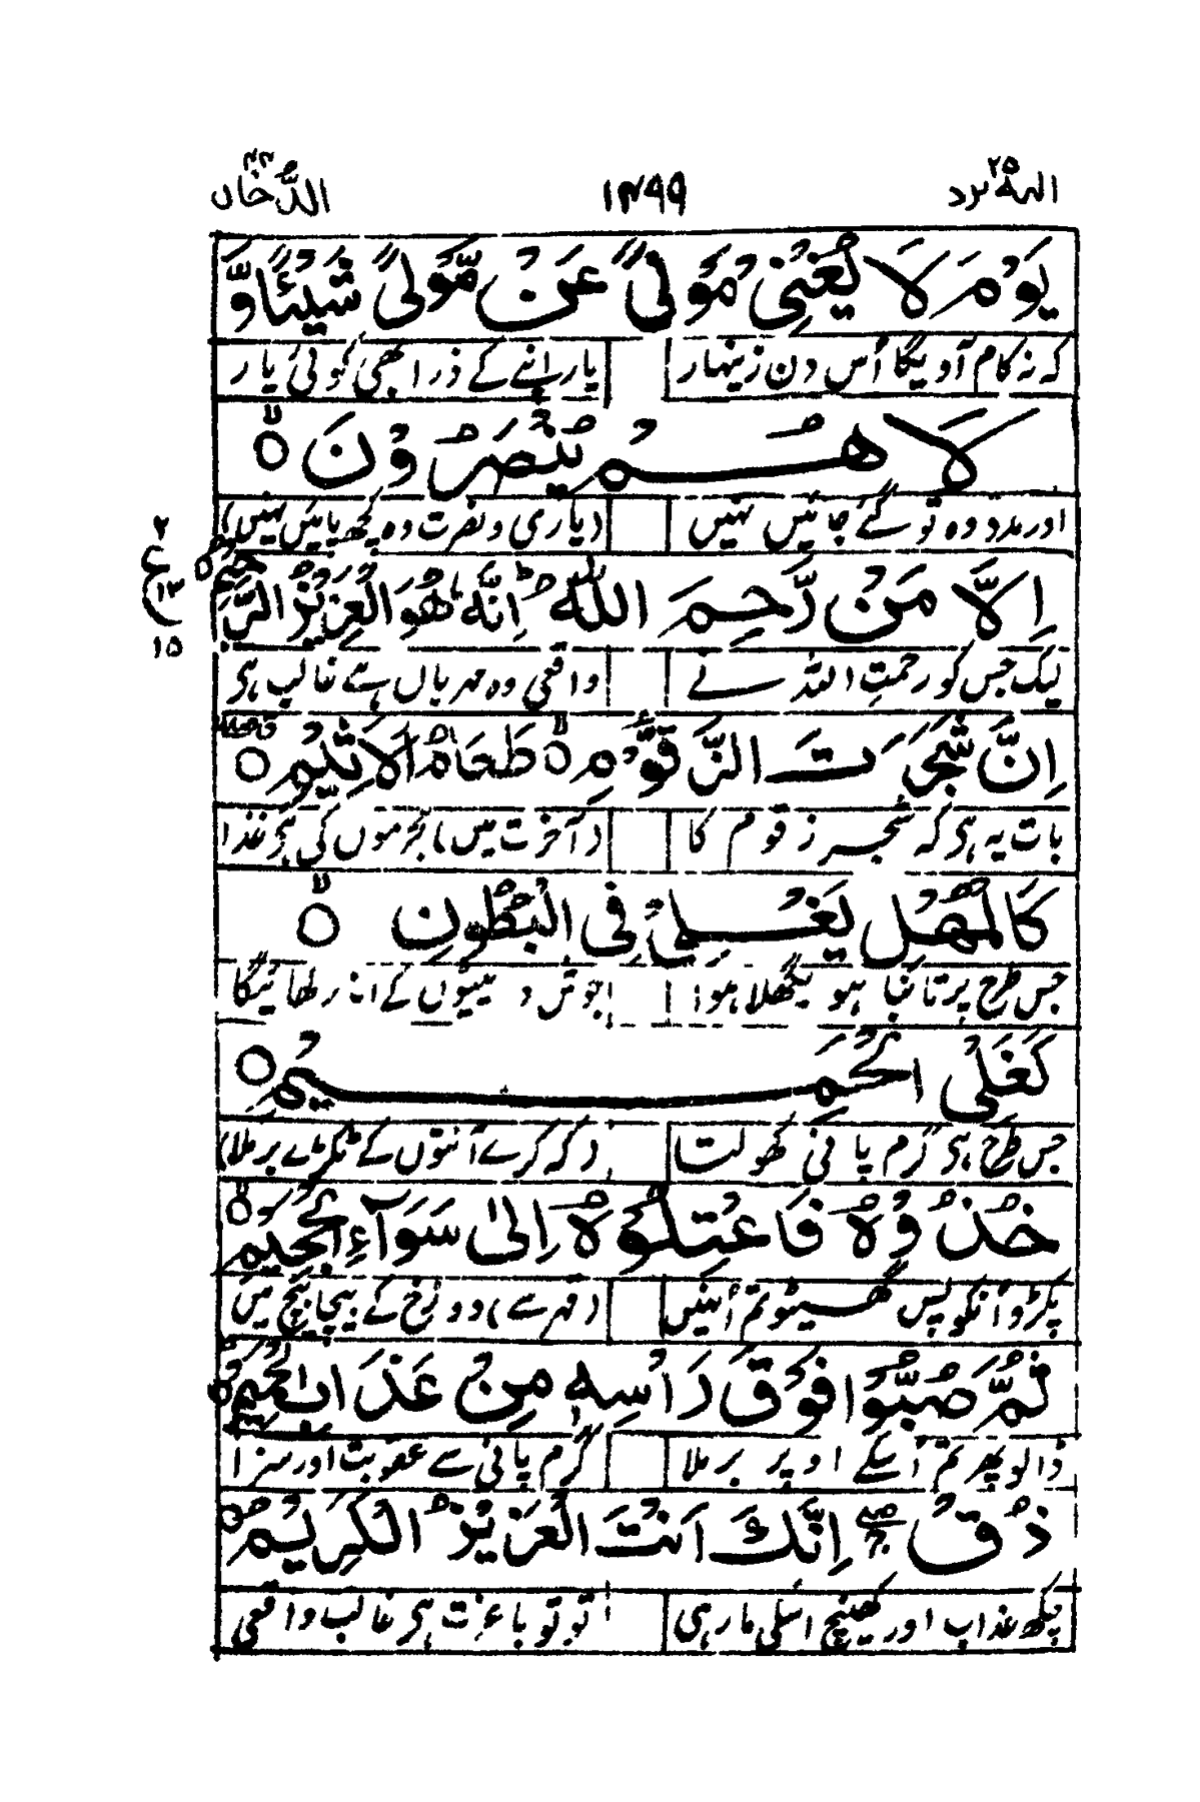 الیہ یرد ۲۵
۱۴۹۹
الدُّخان ۴۴
يَوْمَ لَا يُغْنِيْ مَوْلًى عَنْ مَّوْلًى شَيْئًا وَّ
کہ نہ کام آویگا اُس دن زینہار یار اپنے کے ذرا بھی کوئی یار
لَا هُمْ يُنْصَرُوْنَ ۝ۙ
اور مدد وہ تو کئے جائیں نہیں (یاری و نصرت وہ کچھ پائیں نہیں)
اِلَّا مَنْ رَّحِمَ اللّٰهُ ؕ اِنَّهٗ هُوَ الْعَزِيْزُ الرَّحِيْمُ ۝
۲
ع
۱۳
۱۵
لیک جس کو رحمتِ اللہ نے واقعی وہ مہرباں ہے غالب ہی
اِنَّ شَجَرَتَ الزَّقُّوْمِ ۝ۙ طَعَامُ الْاَثِيْمِ ۝
بات یہ ہی کہ شجر زقوم کا (آخرت میں) مجرموں کی ہی غذا
كَالْمُهْلِ يَغْلِيْ فِي الْبُطُوْنِ ۝ۙ
جس طرح پر تانبا ہو پگھلا ہوا جوش کے اندر کھائیگا
كَغَلْيِ الْحَمِيْمِ ۝
جس طرح ہی گرم پانی کھولتا (کہ کرے آنتوں کے ٹکڑے برملا)
خُذُوْهُ فَاعْتِلُوْهُ اِلٰى سَوَآءِ الْجَحِيْمِ ۝ۙ
پکڑو اُنکو پس گھسیٹو تم اُنہیں (قہر سے) دوزخ کے بیچا بیچ میں
ثُمَّ صُبُّوْا فَوْقَ رَاْسِهٖ مِنْ عَذَابِ الْحَمِيْمِ ۝
ڈالو پھر تم اُسکے اوپر برملا گرم پانی سے عقوبت اور سزا
ذُقْ ۚۖ اِنَّكَ اَنْتَ الْعَزِيْزُ الْكَرِيْمُ ۝
چکھ عذاب اور کھینچ اسکی مار ہی تو تو با عزت ہی غالب واقعی